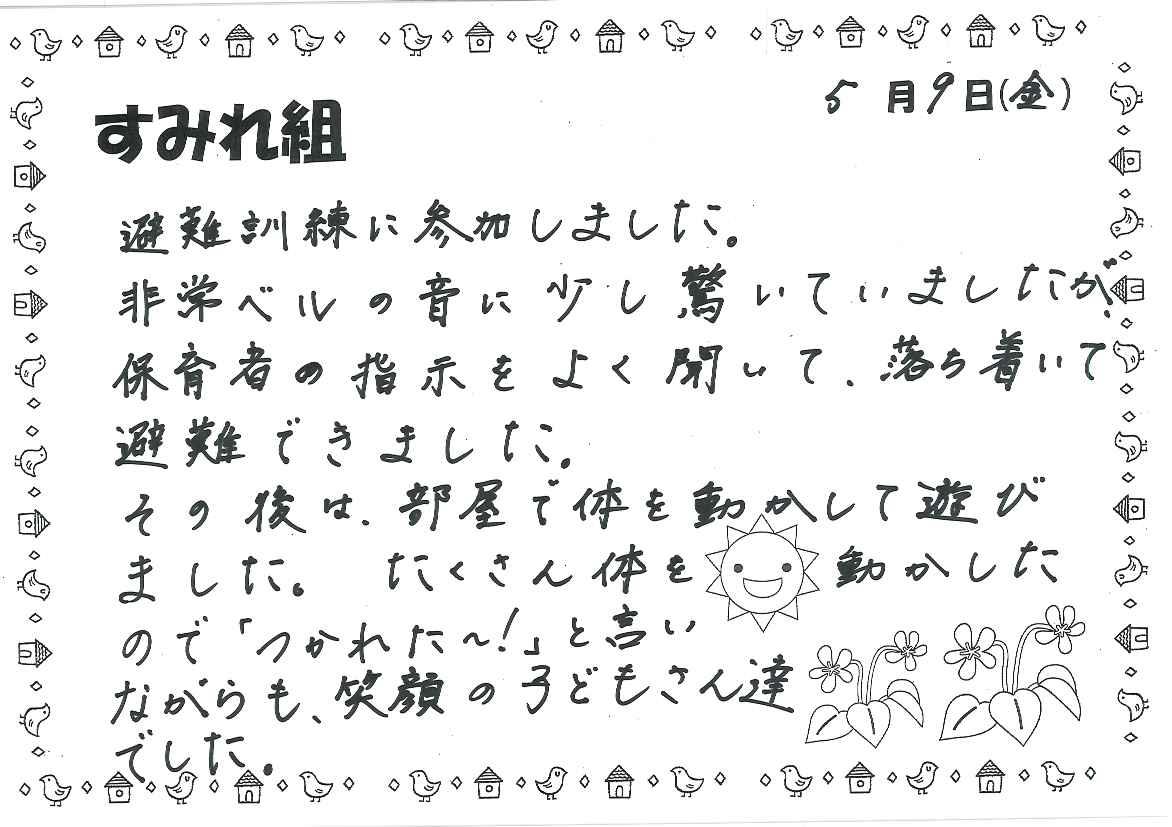 5月9日(金)
すみれ組
避難訓練に参加しました。
非常ベルの音に少し驚いていましたが、
保育者の指示をよく聞いて、落ち着いて
避難できました。
その後は、部屋で体を動かして遊び
ました。 たくさん体を動かした
ので「つかれた〜!」と言い
ながらも、笑顔の子どもさん達
でした。